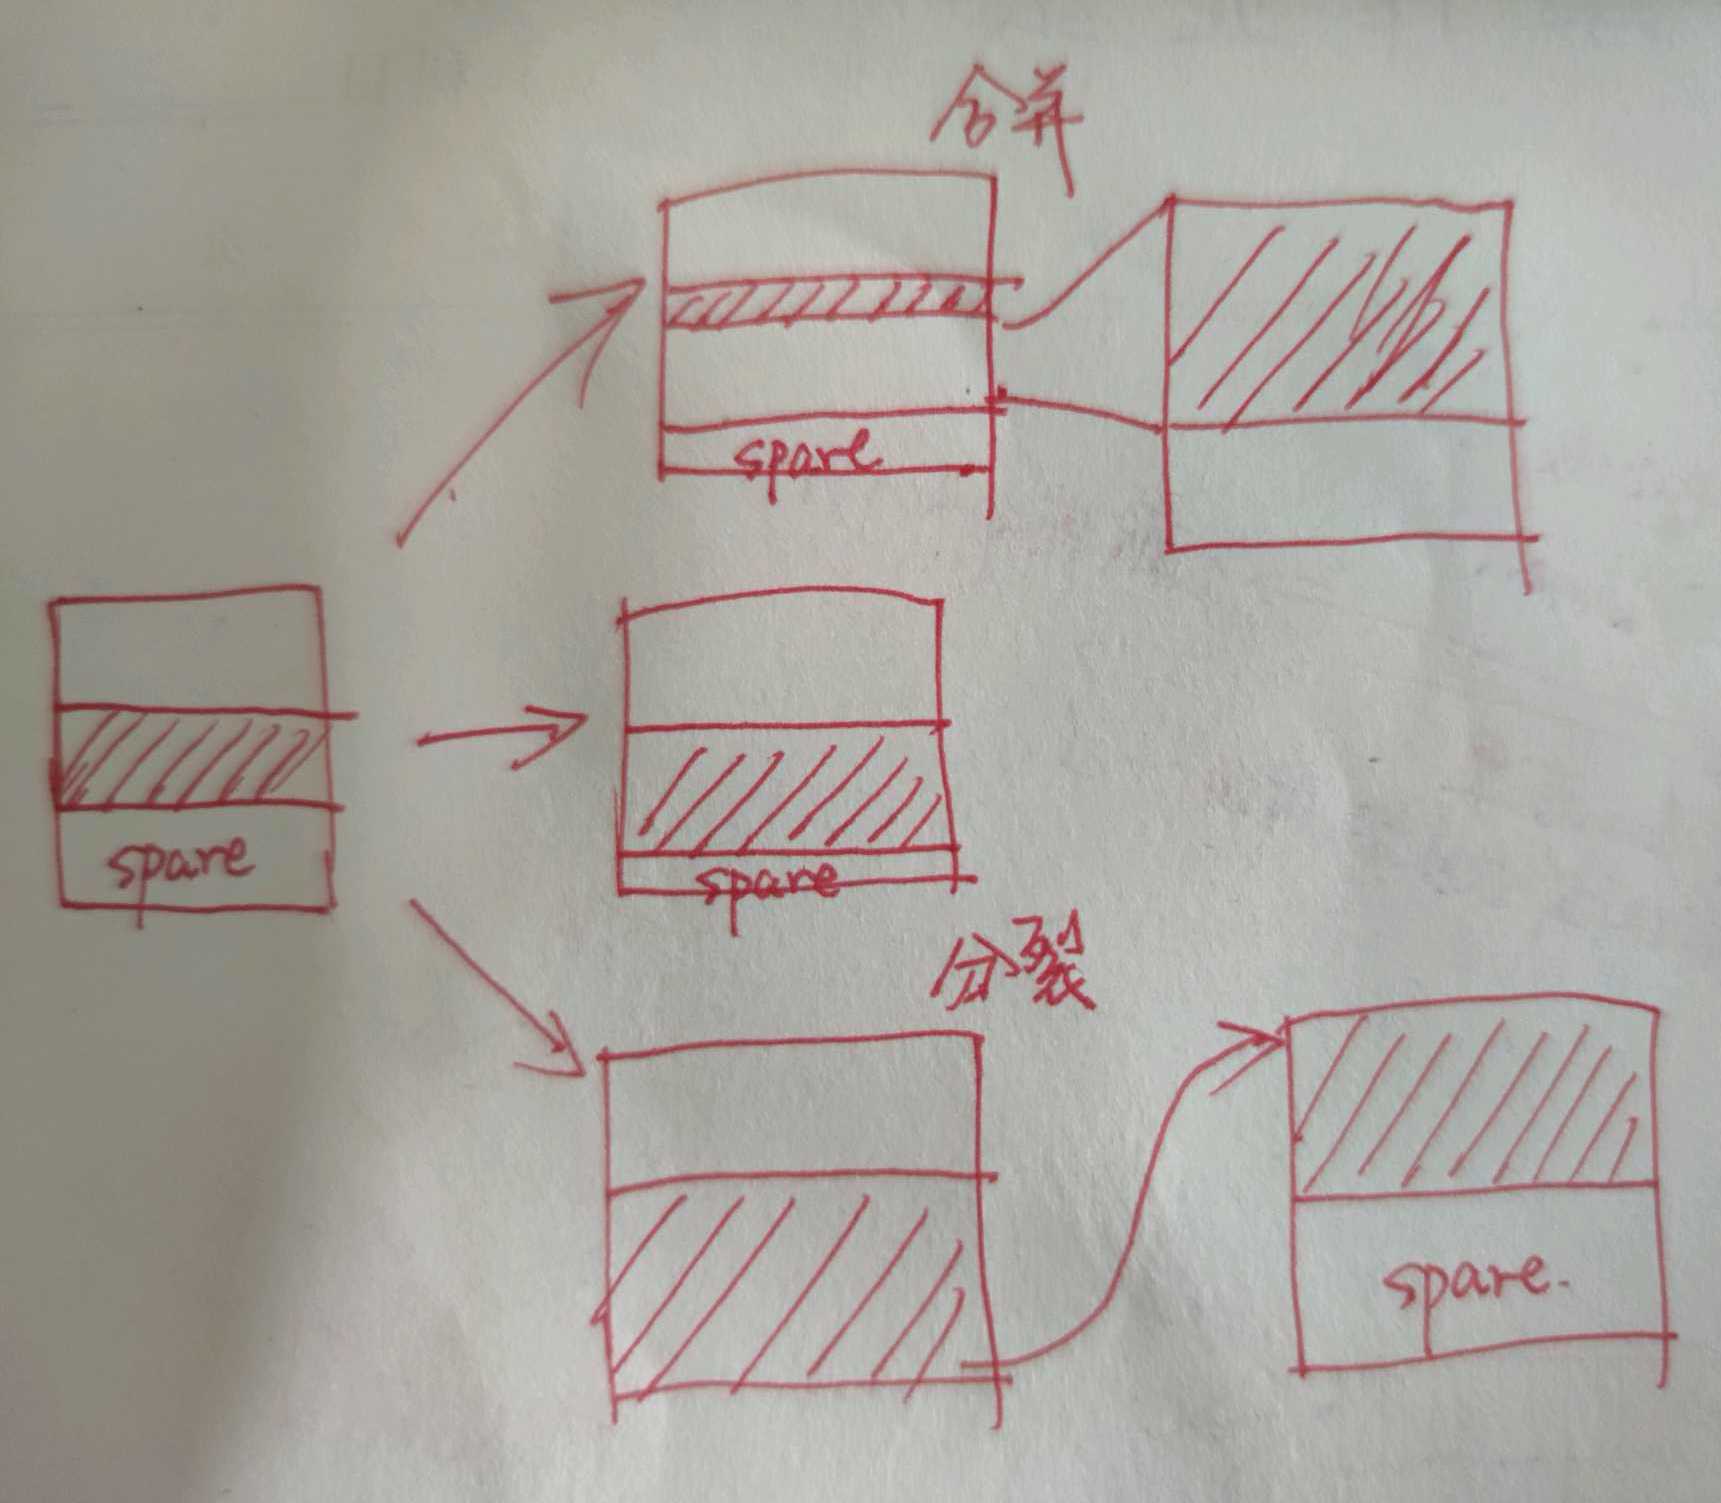 合并
spare
spare
spare
分裂
spare.